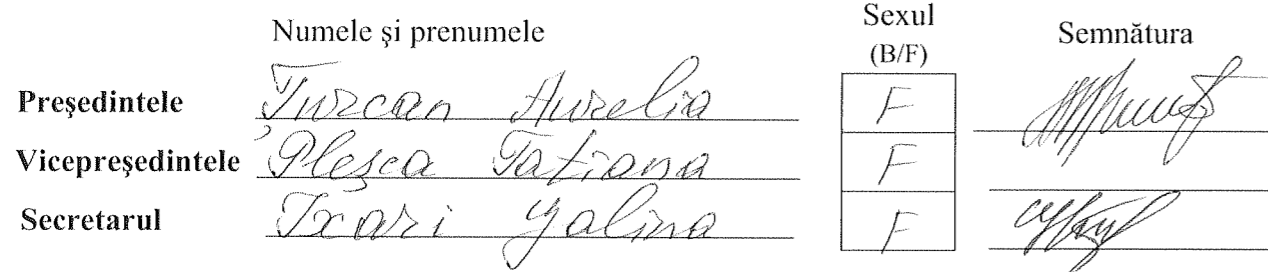 Numele şi prenumele Sexul (B/F) Semnătura
Preşedintele Turcan Aurelia F
Vicepreşedintele Pleşca Tatiana F
Secretarul Galina F